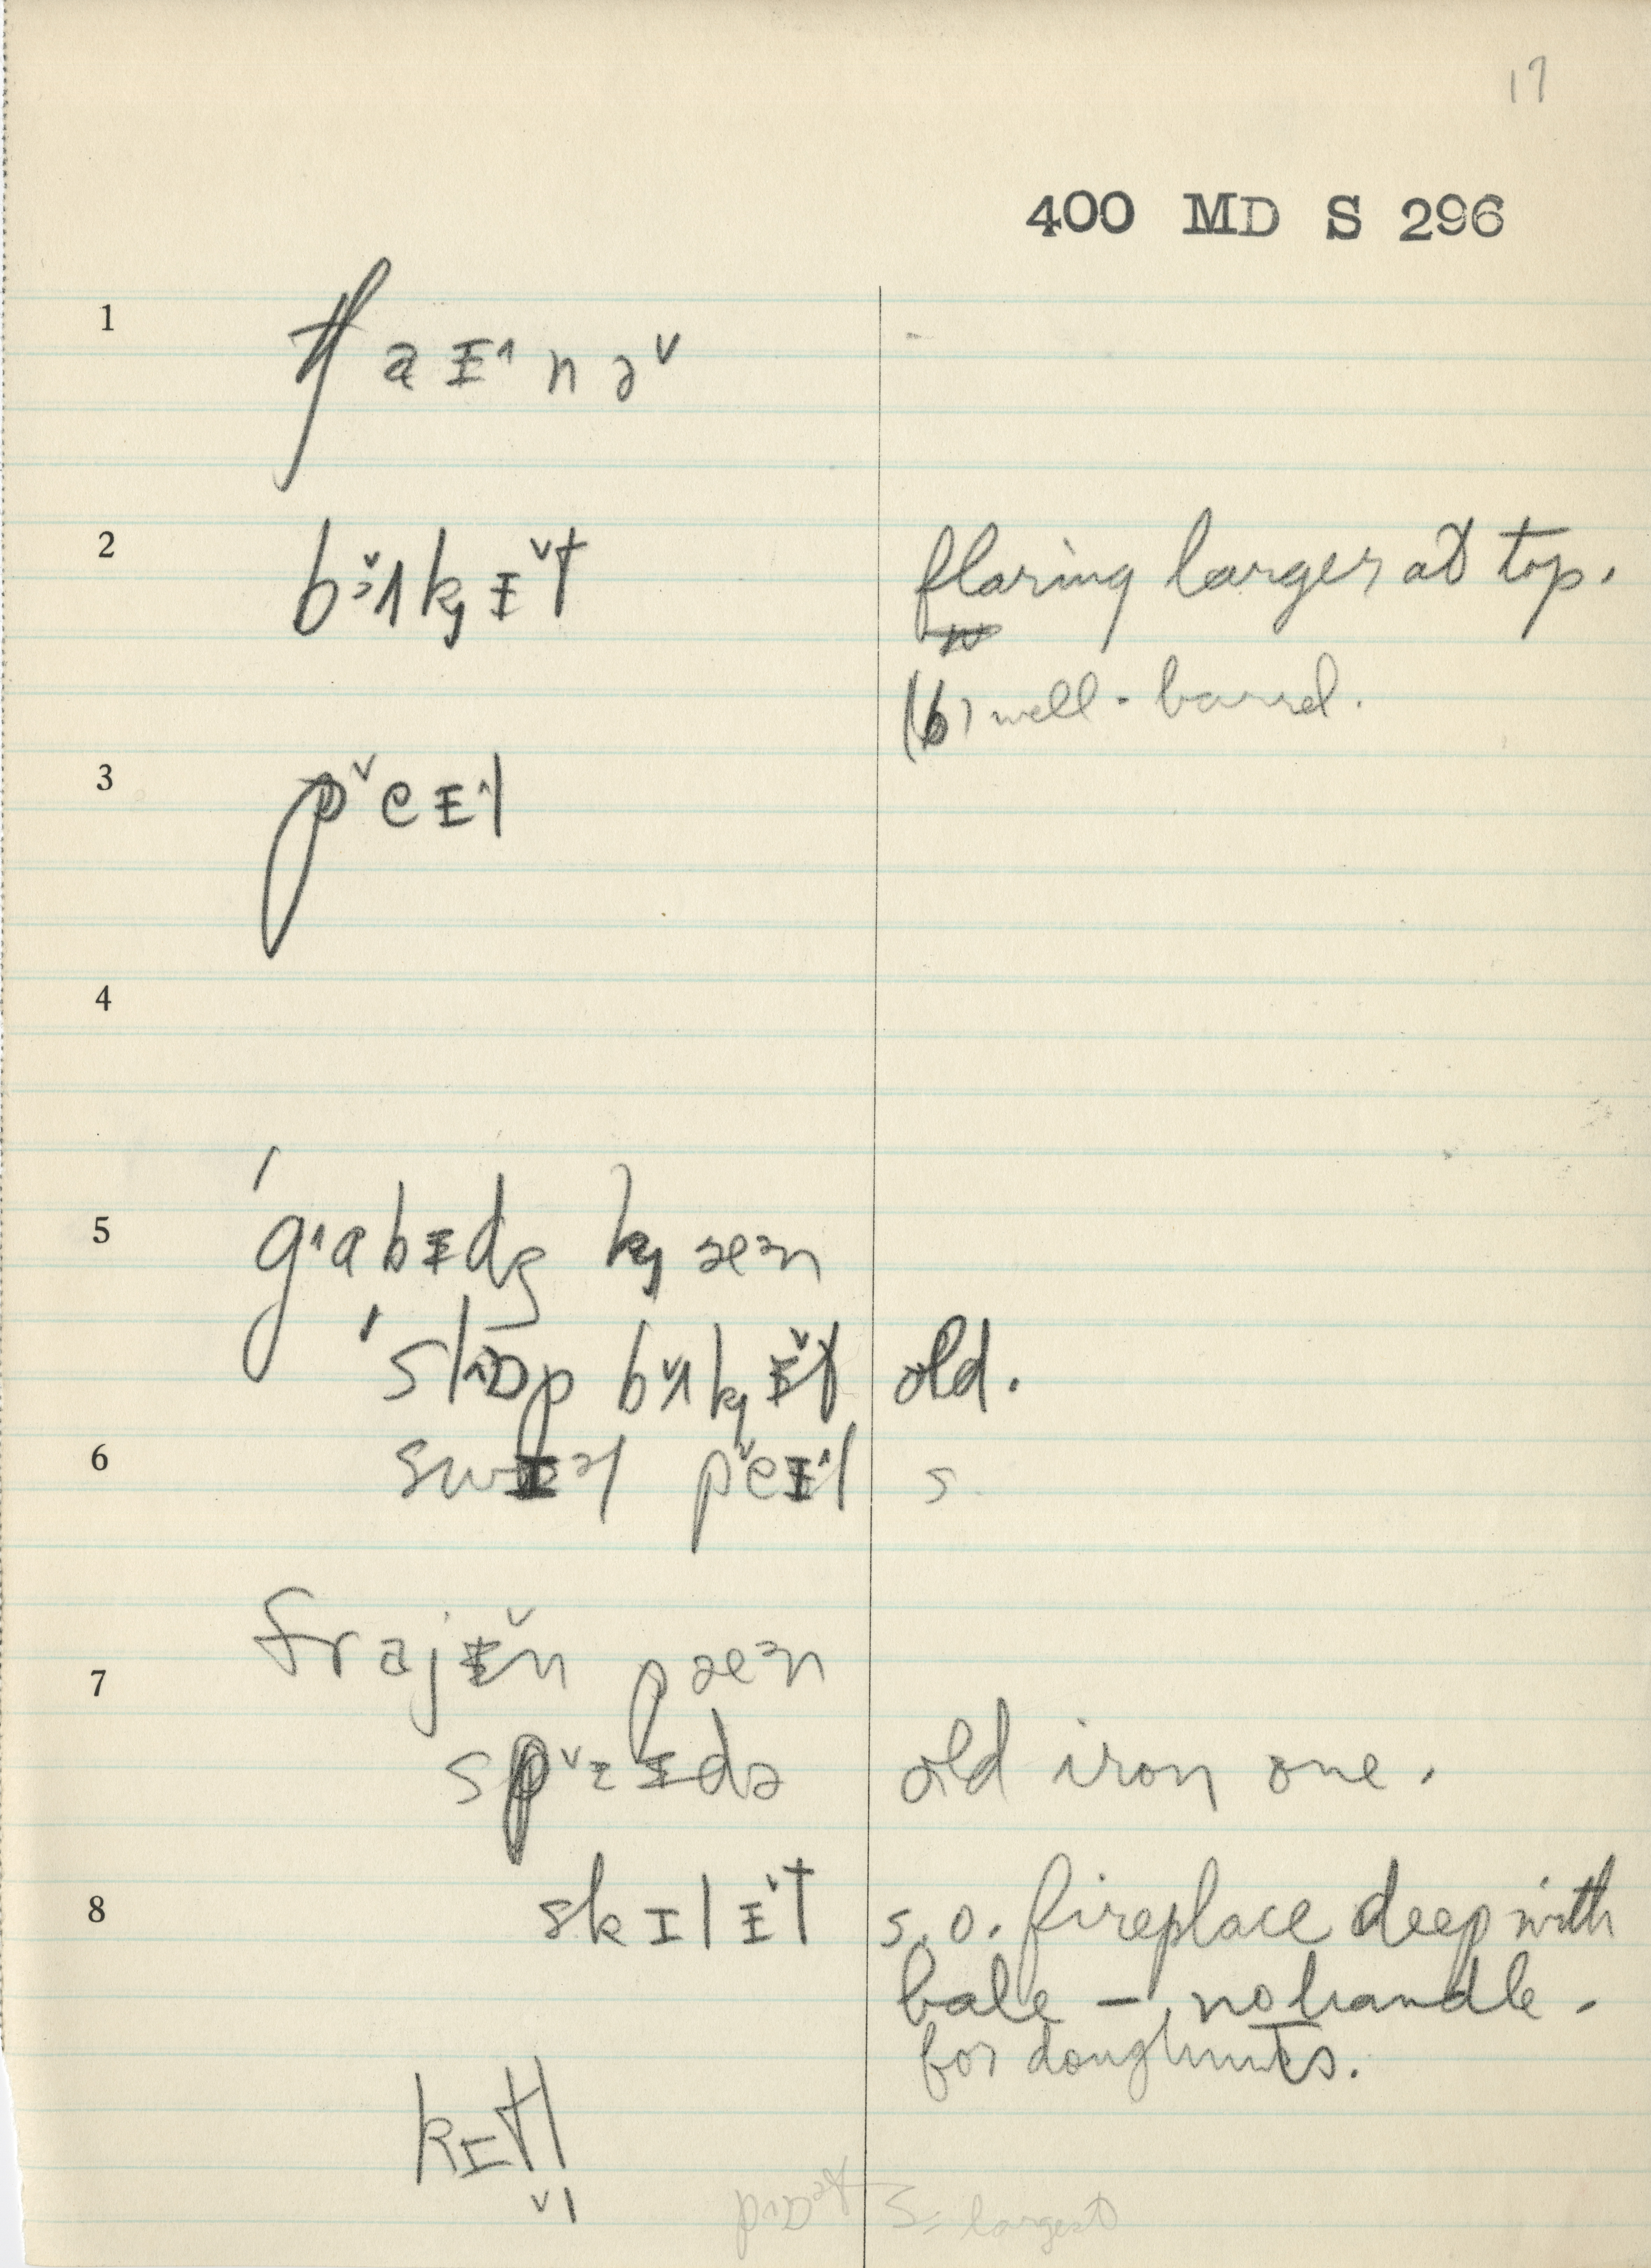 17
400 MD S 296
1
tʃaɪ˄nə˅
2 bɜ˅ʌk̟ɪ˅t flaring larger at top.
(b) well-barrel.
3 p˅eɪ˄l
4
5 ˈgˑabɪdʒ k̟æᵊn
ˈslɒp bɜ˅ʌk̟ɪ˅t old.
6 swɪᵊl p˅eɪ˄l s.
frajɪ˅n pæᵊn
7
sp˅ɪdə old iron one.
8 skɪlɪ˅t s.o. fireplace deep with
bale – no handle -
for doughnuts.
kɪtl
pɒᵊt S = largest